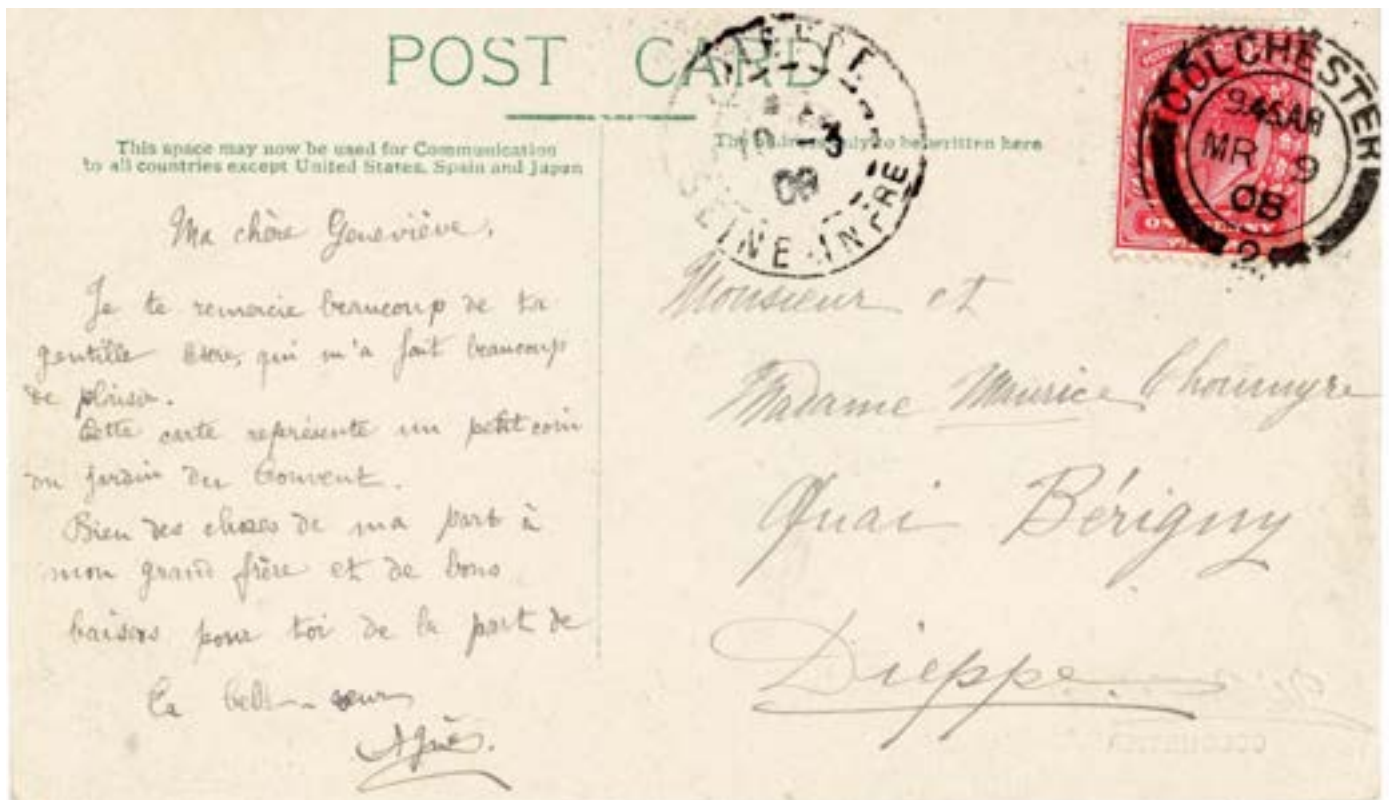 POST CARD
This space may now be used for Communication
to all countries except United States, Spain and Japan
The address only to be written here
DIEPPE
10 -3
08
SEINE-INFRE
COLCHESTER
9.45AM
MR 9
08
2
ONE PENNY
Ma chère Geneviève,
Je te remercie beaucoup de ta
gentille lettre, qui m'a fait beaucoup
de plaisir.
Cette carte représente un petit coin
du jardin du Couvent.
Bien des choses de ma part à
mon grand frère et de bons
baisers pour toi de la part de
ta belle-sœur
Agnès.
Monsieur et
Madame Maurice Choumyre
Quai Bérigny
Dieppe.